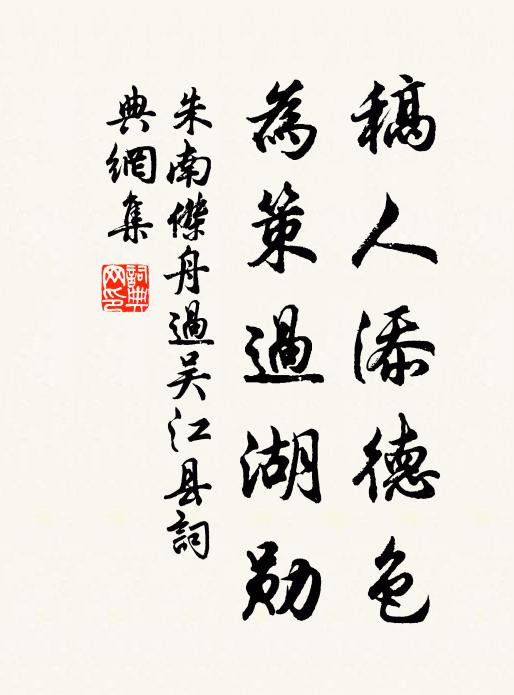 稿人添德色
為策過湖勋
朱南傑舟過吴江县詞
典網集
詞典网印